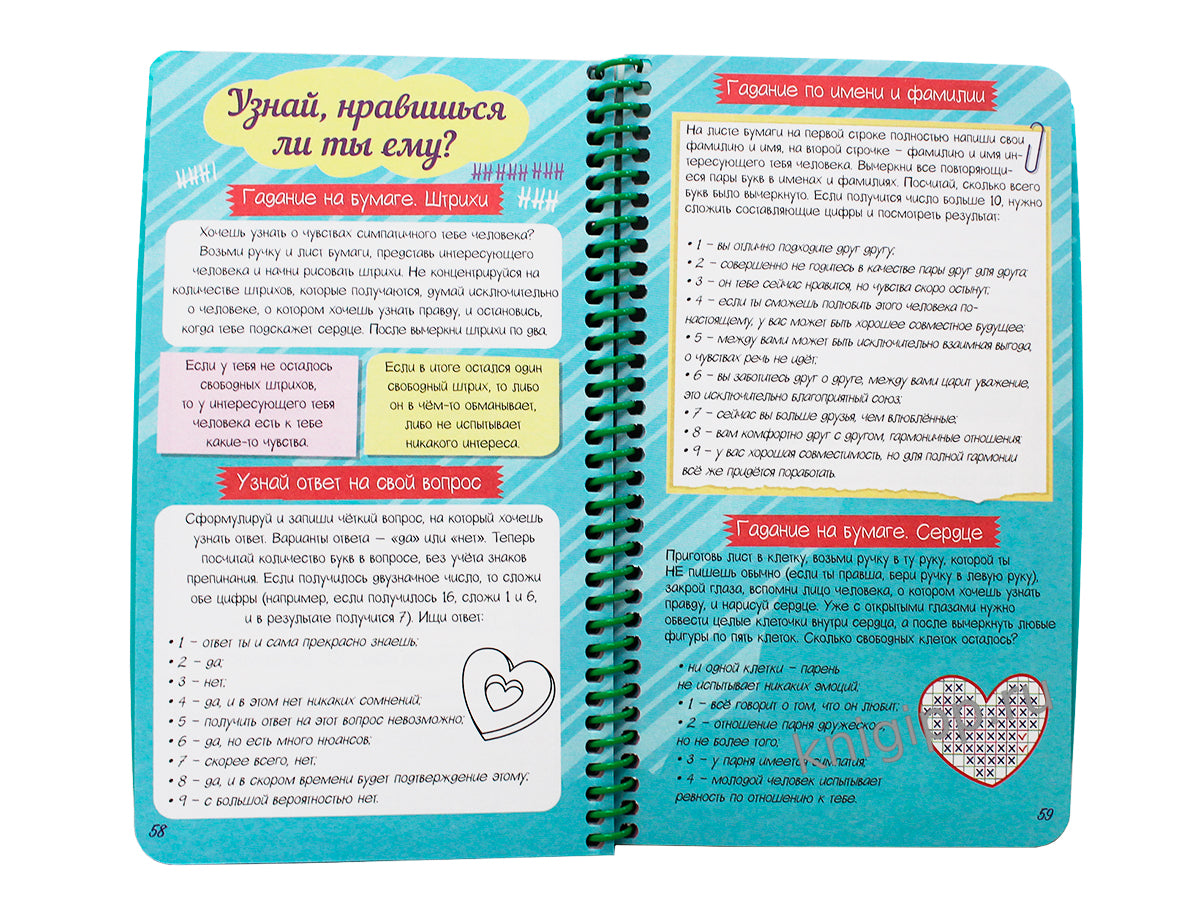 Узнай, нравишься
ли ты ему?
Гадание на бумаге. Штрихи
Хочешь узнать о чувствах симпатичного тебе человека?
Возьми ручку и лист бумаги, представь интересующего
человека и начни рисовать штрихи. Не концентрируйся на
количестве штрихов, которые получаются, думай исключительно
о человеке, о котором хочешь узнать правду, и остановись,
когда тебе подскажет сердце. После вычеркни штрихи по два.
Если у тебя не осталось
свободных штрихов,
то у интересующего тебя
человека есть к тебе
какие-то чувства.
Если в итоге остался один
свободный штрих, то либо
он в чём-то обманывает,
либо не испытывает
никакого интереса.
Узнай ответ на свой вопрос
Сформулируй и запиши чёткий вопрос, на который хочешь
узнать ответ. Варианты ответа — «да» или «нет». Теперь
посчитай количество букв в вопросе, без учёта знаков
препинания. Если получилось двузначное число, то сложи
обе цифры (например, если получилось 16, сложи 1 и 6,
и в результате получится 7). Ищи ответ:
• 1 – ответ ты и сама прекрасно знаешь;
• 2 – да;
• 3 – нет;
• 4 – да, и в этом нет никаких сомнений;
• 5 – получить ответ на этот вопрос невозможно;
• 6 – да, но есть много нюансов;
• 7 – скорее всего, нет;
• 8 – да, и в скором времени будет подтверждение этому;
• 9 – с большой вероятностью нет.
58
Гадание по имени и фамилии
На листе бумаги на первой строке полностью напиши свои
фамилию и имя, на второй строчке – фамилию и имя ин-
тересующего тебя человека. Вычеркни все повторяющи-
еся пары букв в именах и фамилиях. Посчитай, сколько всего
букв было вычеркнуто. Если получится число больше 10, нужно
сложить составляющие цифры и посмотреть результат:
• 1 – вы отлично подходите друг другу;
• 2 – совершенно не годитесь в качестве пары друг для друга;
• 3 – он тебе сейчас нравится, но чувства скоро остынут;
• 4 – если ты сможешь полюбить этого человека по-
настоящему, у вас может быть хорошее совместное будущее;
• 5 – между вами может быть исключительно взаимная выгода,
о чувствах речь не идёт;
• 6 – вы заботитесь друг о друге, между вами царит уважение,
это исключительно благоприятный союз;
• 7 – сейчас вы больше друзья, чем влюблённые;
• 8 – вам комфортно друг с другом, гармоничные отношения;
• 9 – у вас хорошая совместимость, но для полной гармонии
всё же придётся поработать.
Гадание на бумаге. Сердце
Приготовь лист в клетку, возьми ручку в ту руку, которой ты
НЕ пишешь обычно (если ты правша, бери ручку в левую руку),
закрой глаза, вспомни лицо человека, о котором хочешь узнать
правду, и нарисуй сердце. Уже с открытыми глазами нужно
обвести целые клеточки внутри сердца, а после вычеркнуть любые
фигуры по пять клеток. Сколько свободных клеток осталось?
• ни одной клетки – парень
не испытывает никаких эмоций;
• 1 – всё говорит о том, что он любит;
• 2 – отношение парня дружеское,
но не более того;
• 3 – у парня имеется симпатия;
• 4 – молодой человек испытывает
ревность по отношению к тебе.
59